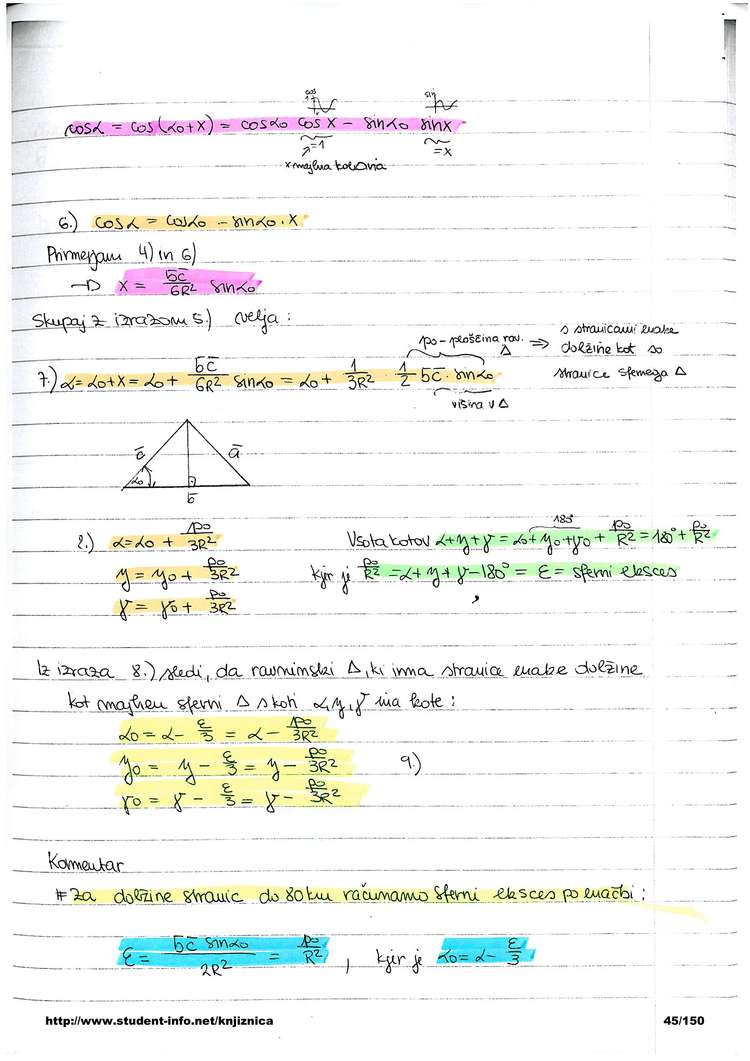 cos sin
cosα = cos(α0+x) = cosα0 cosx − sinα0 sinx
≐1 =x
x majhna količina
6.) cosα = cosα0 − sinα0 · x
Primerjam 4) in 6)
→ x = b̄c̄/6R² sinα0
Skupaj z izrazom 5.) velja:
p0 - ploščina rav. Δ ⇒ s stranicami enake dolžine kot so stranice sfernega Δ
7.) α = α0+x = α0 + b̄c̄/6R² sinα0 = α0 + 1/3R² · 1/2 b̄c̄ · sinα0
višina v Δ
c̄ ā
α0
b̄
8.) α = α0 + p0/3R²
y = y0 + p0/3R²
γ = γ0 + p0/3R²
180°
Vsota kotov α+y+γ = α0+y0+γ0 + p0/R² = 180° + p0/R²
kjer je p0/R² = α+y+γ−180° = ε = sferni eksces
Iz izraza 8.) sledi, da ravninski Δ, ki ima stranice enake dolžine
kot majhen sferni Δ s koti α, y, γ ima kote:
α0 = α − ε/3 = α − p0/3R²
y0 = y − ε/3 = y − p0/3R² 9.)
γ0 = γ − ε/3 = γ − p0/3R²
Komentar
# Za dolžine stranic do 80km računamo sferni eksces po enačbi:
ε = b̄c̄ sinα0/2R² = p0/R², kjer je α0 = α − ε/3
http://www.student-info.net/knjiznica 45/150